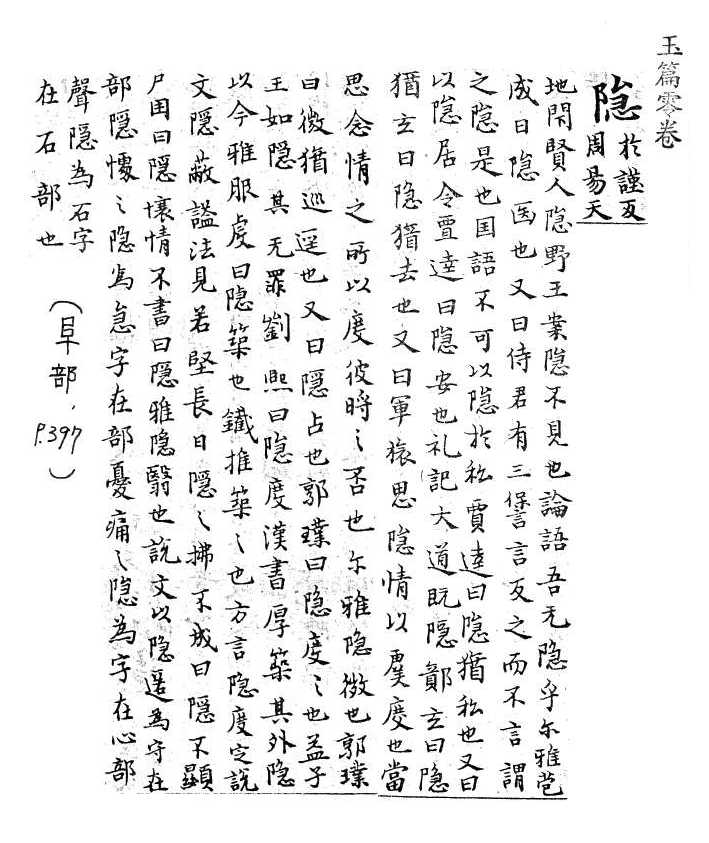 玉篇零卷
隐於謹反周昜天
地閇賢人隐野王案隐不見也論語吾无隐乎尔雅苞
成曰隐匿也又曰侍君有三言言反之而不言謂
之隐是也国語不可以隐於私賈逵曰隐猶私也又曰
以隐居令賈逵曰隐安也礼記大道旣隠鄭玄曰隐
猶去也又曰軍旅思隐情以虞度也當
思念情之所以度彼時〻否也尓雅隐微也郭璞
曰微猶逃逕也又曰隠占也郭璞曰隐度〻也孟子
王如隐其无罪劉熙曰隐度漢書厚築其外隐
以今雅服虔曰隐築也鐵推築〻也方言隐度定說
文隠蔽謚法見若堅長曰隠〻拂不成曰隠不顯
尸国曰隱懷情不書曰隱雅隐翳也說文以隐遁為字在
部隠慢〻隐為急字在部憂痛〻隐為字在心部
聲隠為石字
在石部也
（阜部，P.397）